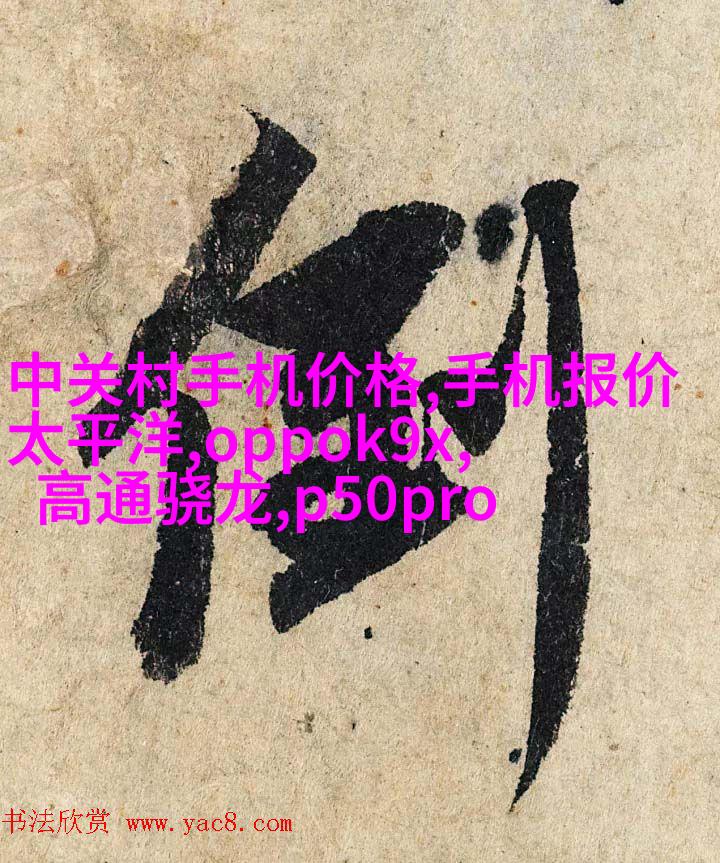 倒
中关村手机价格,手机报价
太平洋,oppok9x,
高通骁龙,p50pro
书法欣赏 www.yac8.com